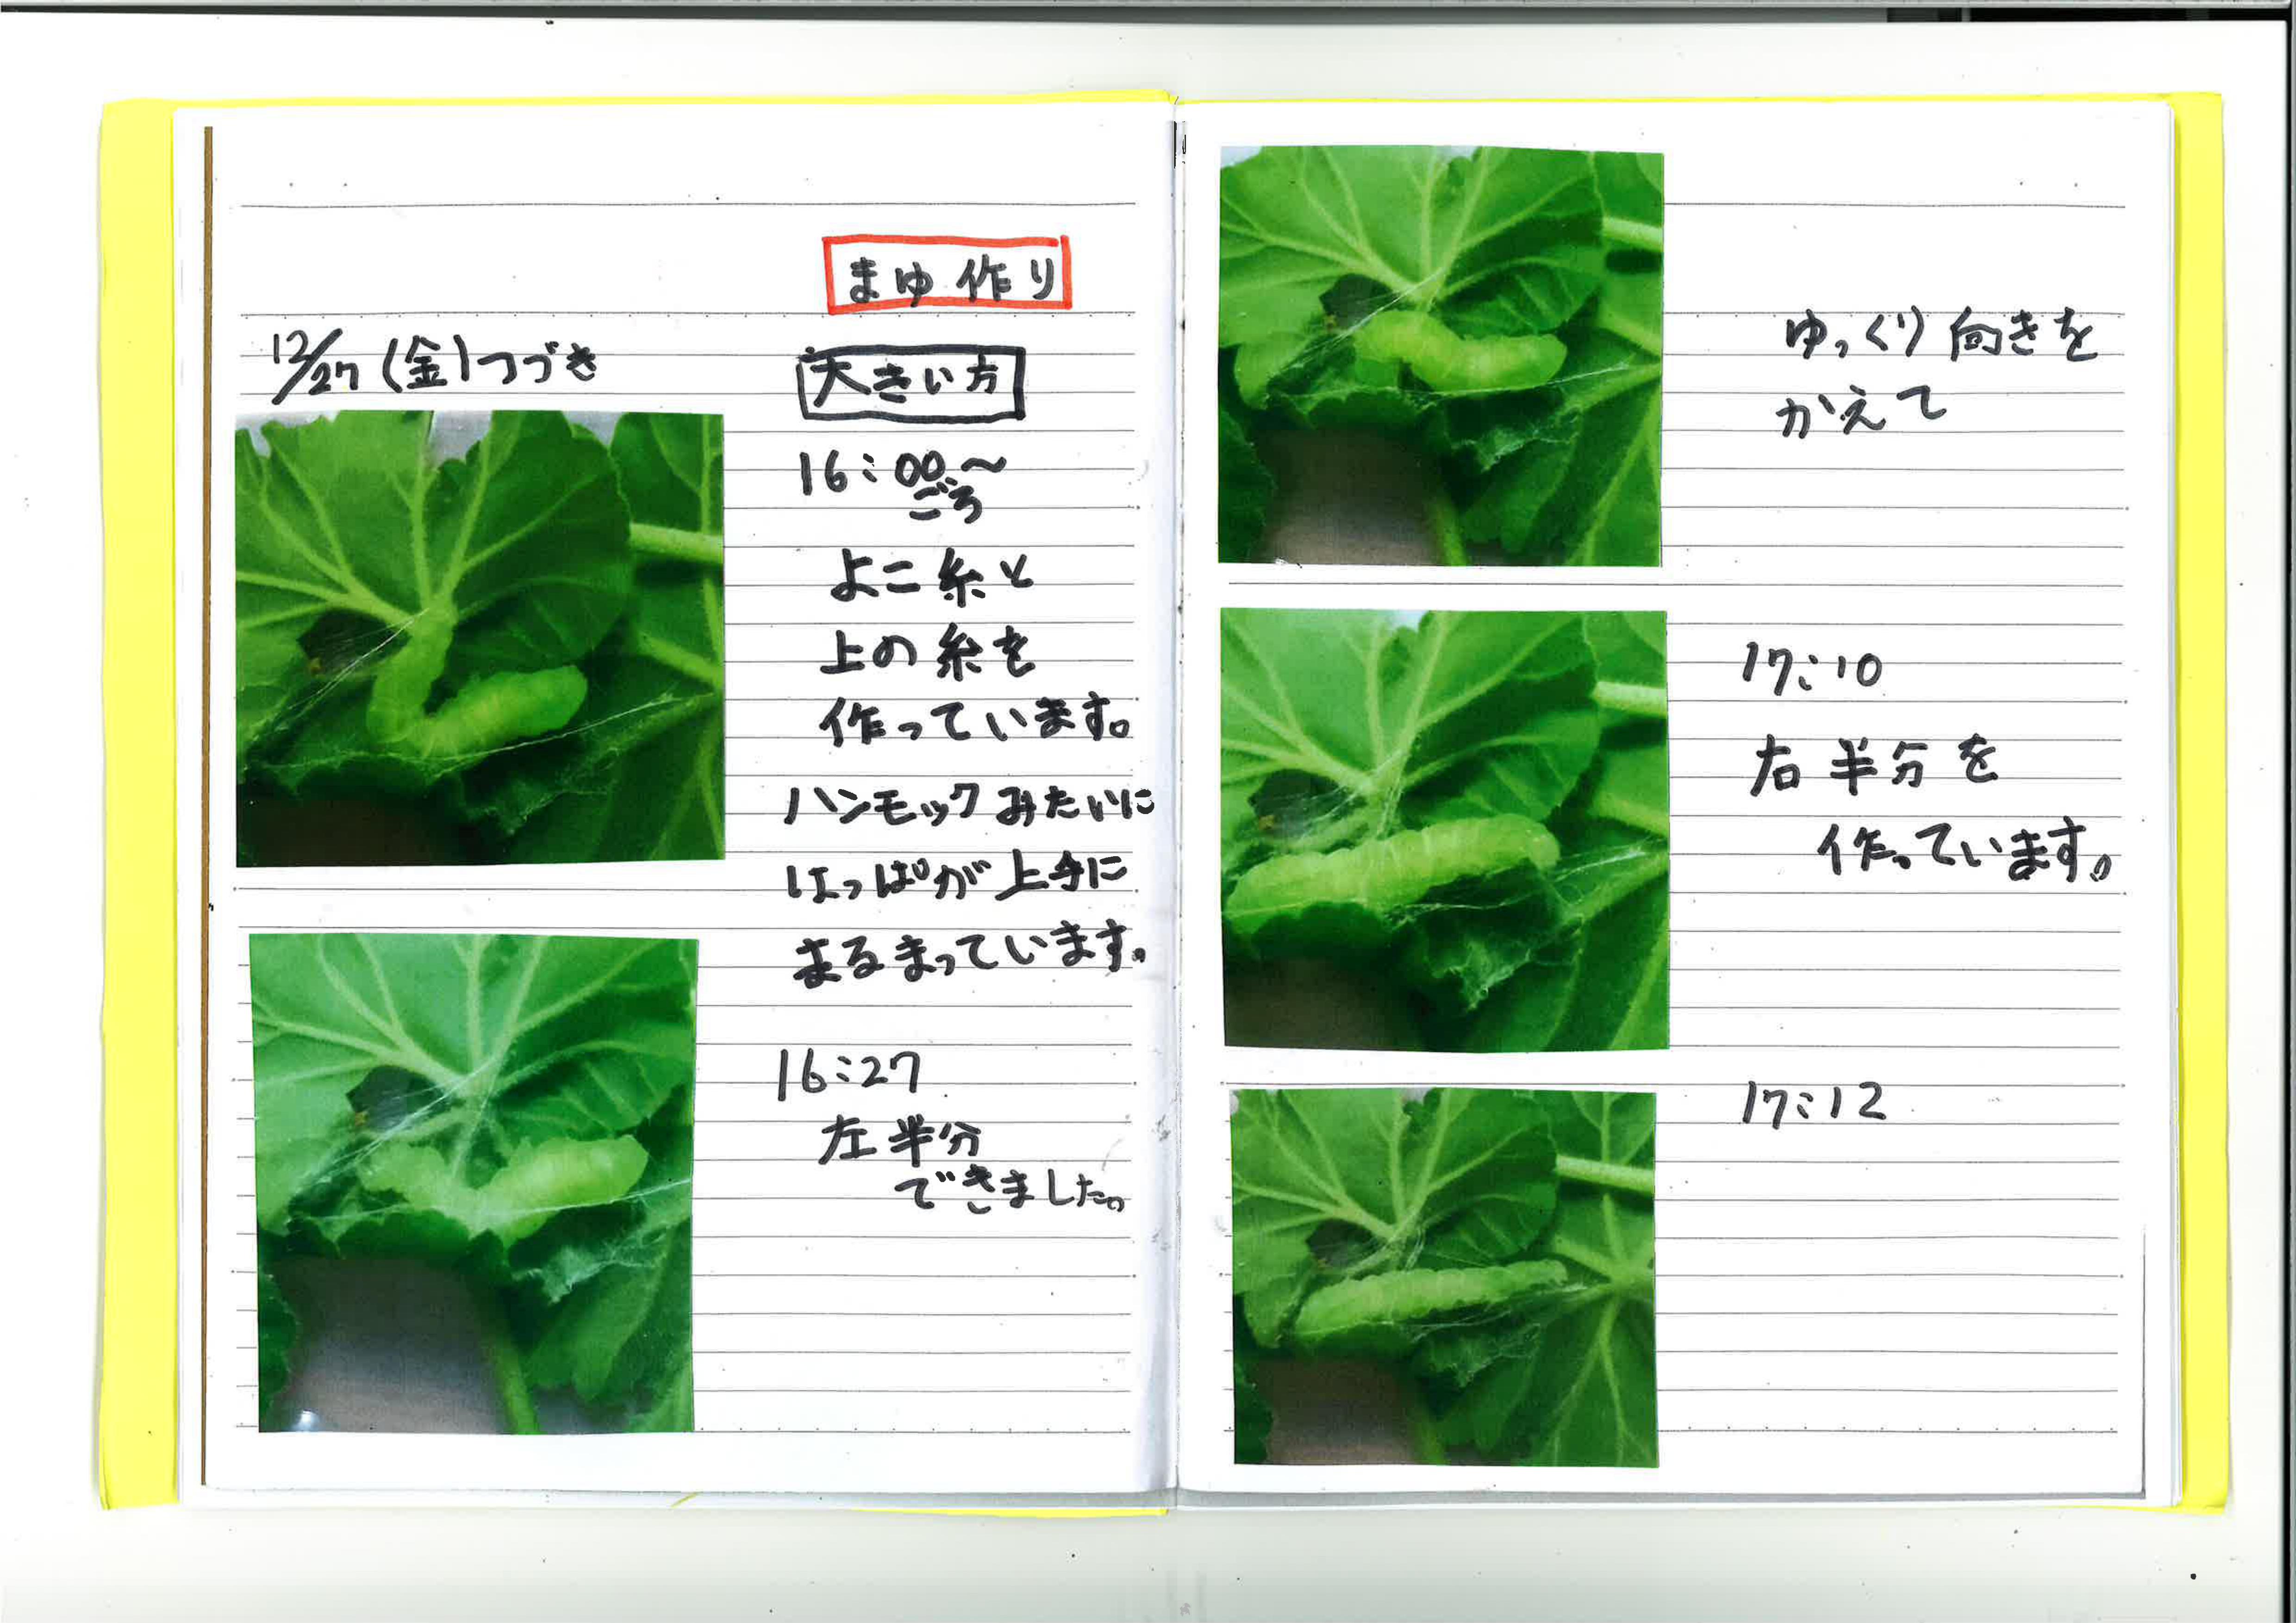 まゆ作り
12/27(金)つづき
大きい方
16:00~
ごろ
よこ糸と
上の糸を
作っています。
ハンモックみたいに
はっぱが上手に
まるまっています。
16:27
左半分
できました。
ゆっくり向きを
かえて
17:10
右半分を
作っています。
17:12